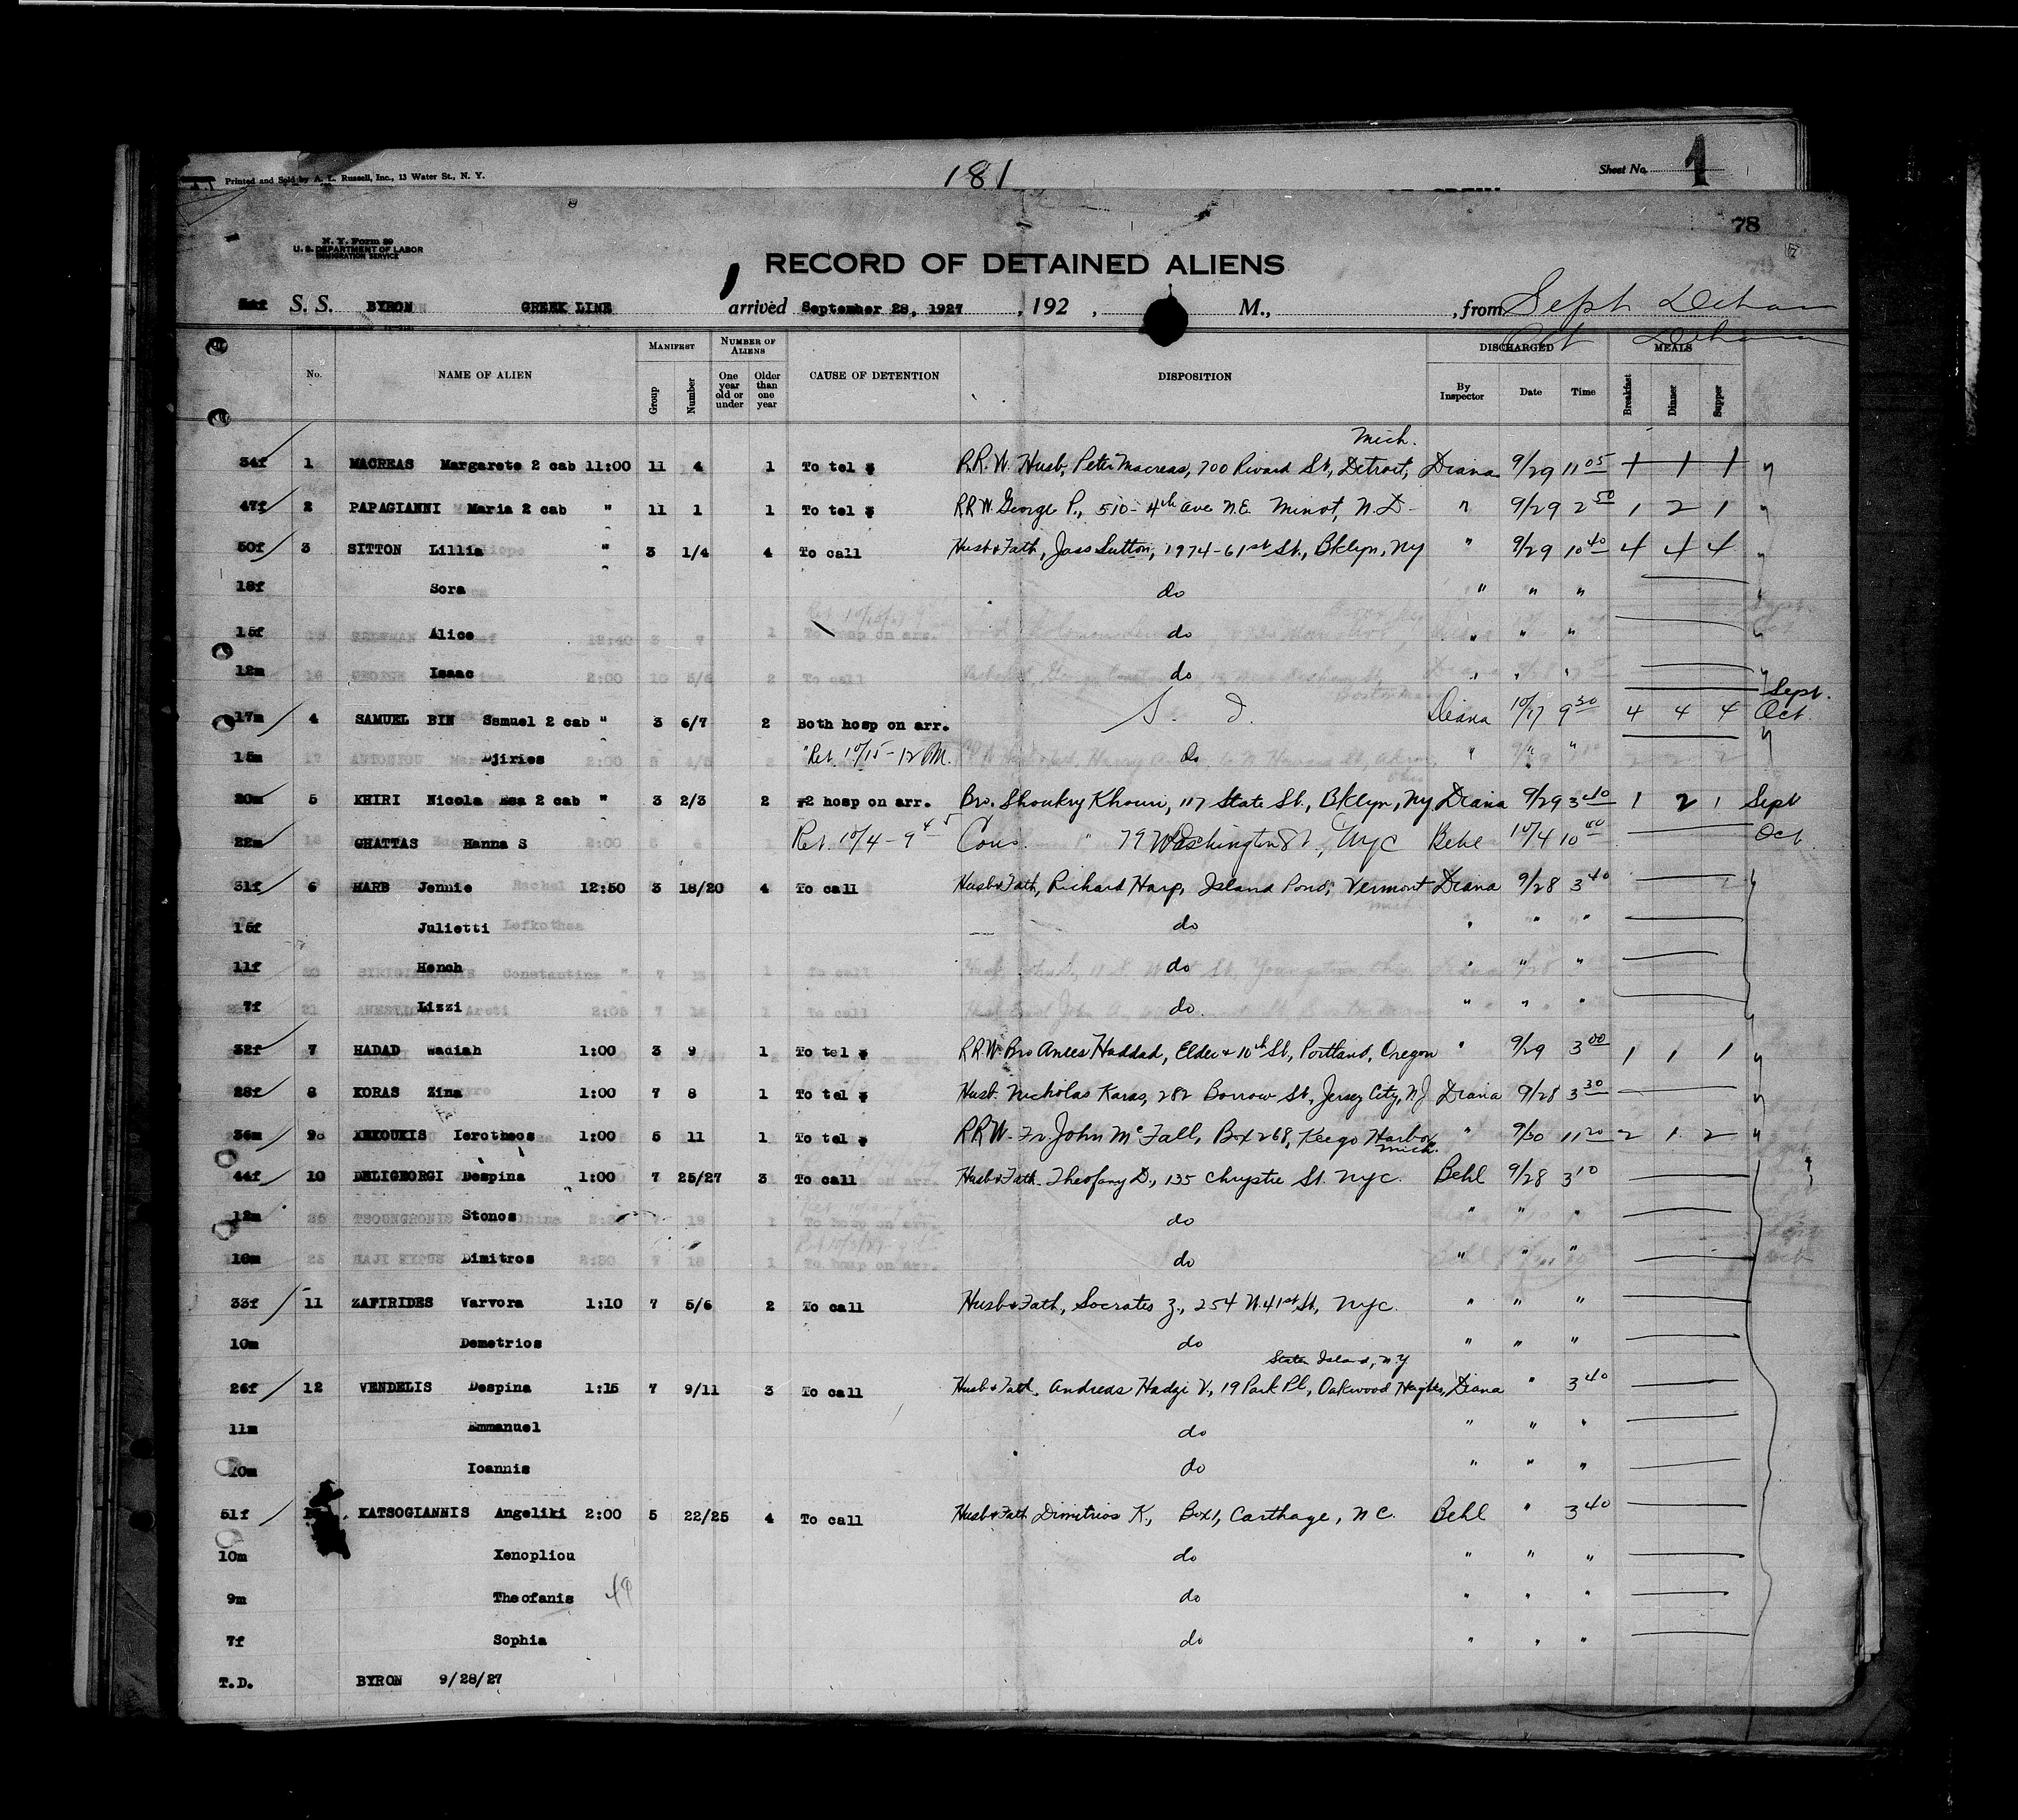 Printed and Sold by A. L. Russell, Inc., 13 Water St., N. Y.
181
Sheet No. 1
78
N. Y. Form 29
U. S. DEPARTMENT OF LABOR
IMMIGRATION SERVICE
RECORD OF DETAINED ALIENS
S. S. BYRON GREEK LINE arrived September 28, 1927, 192 , M., , from Sept
Oct
No. NAME OF ALIEN MANIFEST Group Number NUMBER OF ALIENS One year old or under Older than one year CAUSE OF DETENTION DISPOSITION DISCHARGED By Inspector Date Time MEALS Breakfast Dinner Supper
Mich.
34f 1 MACREAS Margarete 2 cab 11:00 11 4 1 To tel $ R.R.W. Husb, Peter Macreas, 700 Rivard St, Detroit, Diana 9/29 11 05 1 1 1 "
47f 2 PAPAGIANNI Maria 2 cab " 11 1 1 To tel $ RRW. George P., 510-4th ave N.E. Minot, N.D- " 9/29 2 50 1 2 1 "
50f 3 SITTON Lillia " 3 1/4 4 To call Husb & Fath, Jass Sutton, 1974-61st St., Bklyn, Ny " 9/29 10 40 4 4 4 "
18f Sora do " " "
15f Alice do " " "
12m Isaac do " " "
Sept.
17m 4 SAMUEL BIN Samuel 2 cab " 3 6/7 2 Both hosp on arr. S. I. Diana 10/17 9 30 4 4 4 Oct
15m Djiries "Ret. 10/15-12 PM. Do " " "
20m 5 KHIRI Nicola Esa 2 cab " 3 2/3 2 #2 hosp on arr. Bro. Shoukry Khouri, 117 State St., Bklyn, Ny Diana 9/29 3 40 1 2 1 Sept
22m GHATTAS Hanna S Ret. 10/4-9 45 Cous. " 79 Washington St., Nyc Behl 10/4 10 40 Oct
31f 6 HARB Jennie 12:50 3 18/20 4 To call Husb & Fath, Richard Harp, Island Pond, Vermont Diana 9/28 3 40
15f Julietti do " " "
11f Hench do " " "
7f Lizzi do " " "
32f 7 HADAD Wadiah 1:00 3 9 1 To tel $ RRW. Bro Anees Haddad, Elder & 10th St., Portland, Oregon " 9/29 3 00 1 1 1 "
28f 8 KORAS Zina 1:00 7 8 1 To tel $ Husb. Nicholas Karas, 282 Borrow St, Jersey City, NJ Diana 9/28 3 30
36m 9 Ierotheos 1:00 5 11 1 To tel $ RRW- Fr. John McFall, Box 268, Keego Harbor " 9/30 11 20 2 1 2 "
Mich.
44f 10 DELIGEORGI Despina 1:00 7 25/27 3 To call Husb & Fath. Theofany D., 135 Chrystie St. Nyc. Behl 9/28 3 10
12m Stonos do " " "
10m Dimitros do " " "
33f 11 ZAFIRIDES Varvora 1:10 7 5/6 2 To call Husb & Fath, Socrates Z., 254 W.41st St, Nyc. " " "
10m Demetrios do " " "
Staten Island, N.Y
26f 12 VENDELIS Despina 1:15 7 9/11 3 To call Husb & Fath, Andreas Hadzi V., 19 Park Pl, Oakwood Heights, Diana " 3 40
11m Emmanuel do " " "
10m Ioannis do " " "
51f KATSOGIANNIS Angeliki 2:00 5 22/25 4 To call Husb & Fath Dimitrios K, Box 1, Carthage, N C. Behl " 3 40
10m Xenopliou do " " "
9m Theofanis 49 do " " "
7f Sophia do " " "
T.D. BYRON 9/28/27